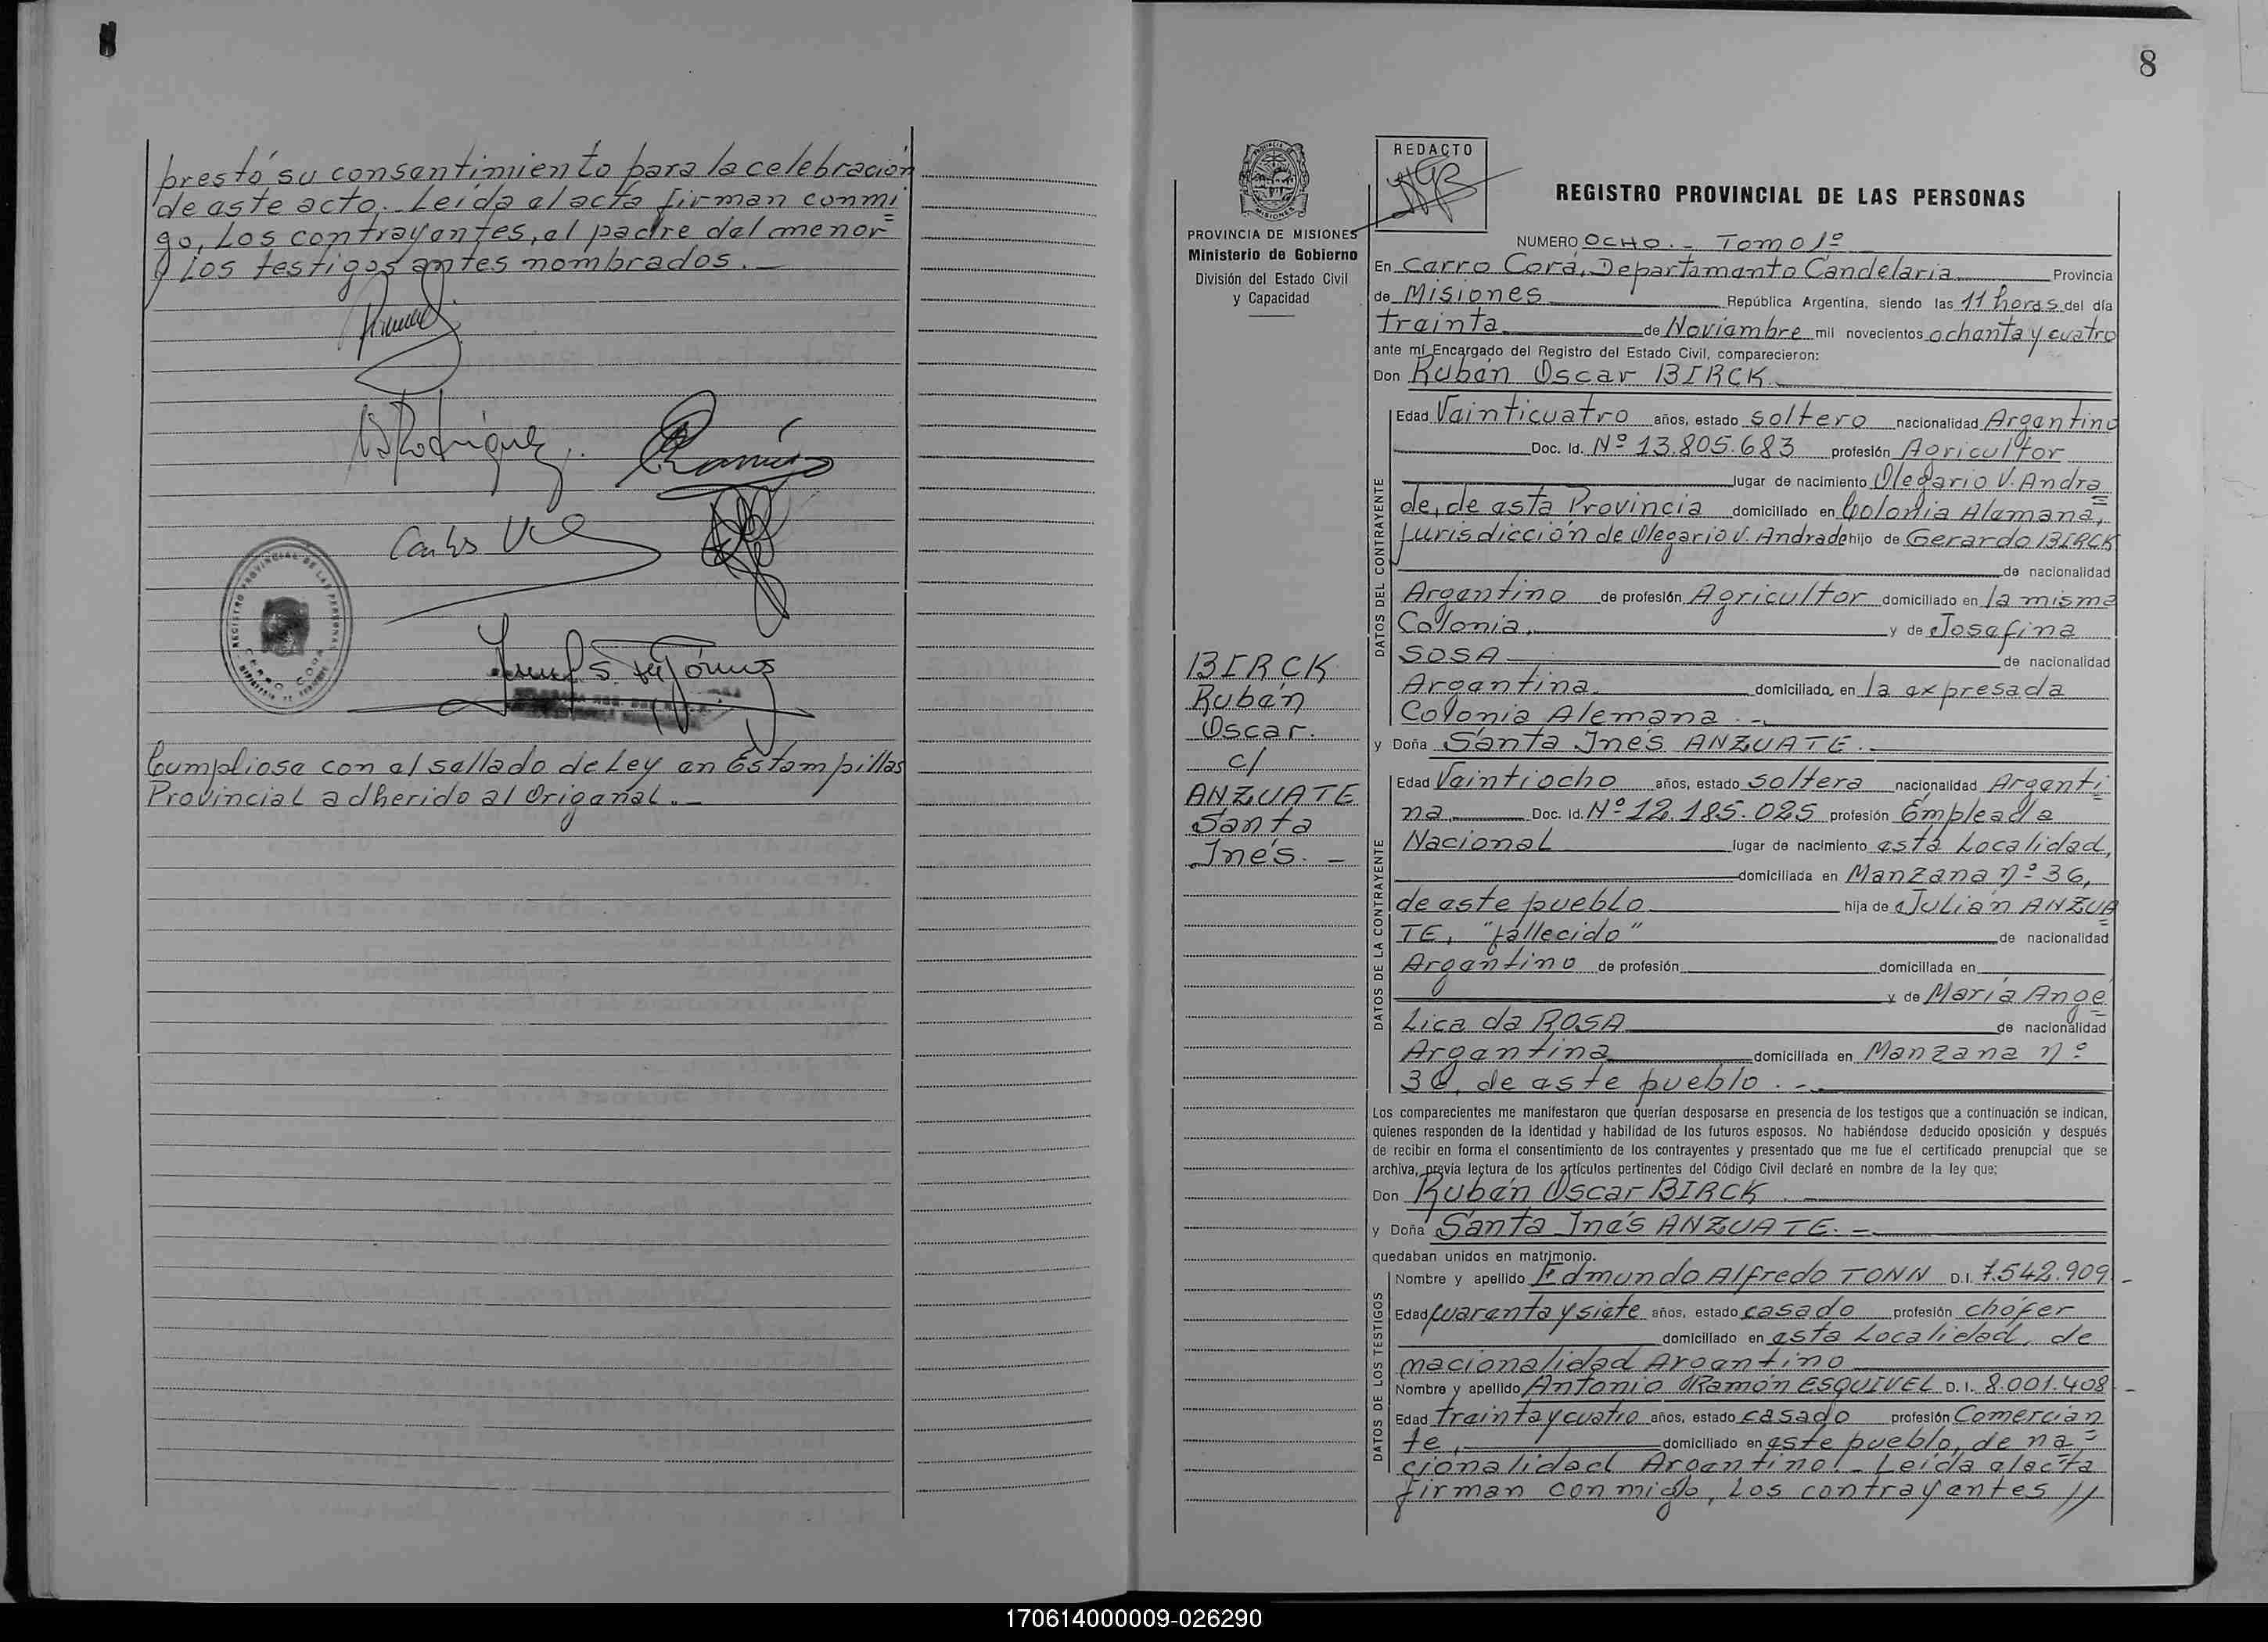 prestó su consentimiento para la celebración
de este acto. Leída el acta firman conmi=
go, los contrayentes, el padre del menor
y los testigos antes nombrados.-
Rodríguez
Ramírez
Carlos
REGISTRO PROVINCIAL DE LAS PERSONAS
CERRO CORA
Cumpliose con el sellado de Ley en Estampillas
Provincial adherido al Origanal.-
8
PROVINCIA DE MISIONES
Ministerio de Gobierno
División del Estado Civil
y Capacidad
BIRCK
Rubén
Oscar.
c/
ANZUATE
Santa
Inés. -
REDACTO
REGISTRO PROVINCIAL DE LAS PERSONAS
NUMERO OCHO.- Tomo 1º
En Cerro Corá, Departamento Candelaria Provincia
de Misiones República Argentina, siendo las 11 horas del día
treinta de Noviembre mil novecientos ochenta y cuatro
ante mí Encargado del Registro del Estado Civil, comparecieron:
Don Rubén Oscar BIRCK
DATOS DEL CONTRAYENTE
Edad Veinticuatro años, estado soltero nacionalidad Argentino
Doc. Id. Nº 13.805.683 profesión Agricultor
lugar de nacimiento Olegario V. Andra=
de, de esta Provincia domiciliado en Colonia Alemana,
jurisdicción de Olegario V. Andrade hijo de Gerardo BIRCK
de nacionalidad
Argentino de profesión Agricultor domiciliado en la misma
Colonia, y de Josefina
SOSA de nacionalidad
Argentina domiciliada, en la expresada
Colonia Alemana.-
y Doña Santa Inés ANZUATE.
DATOS DE LA CONTRAYENTE
Edad Veintiocho años, estado soltera nacionalidad Argenti
na Doc. Id. Nº 12.185.025 profesión Empleada
Nacional lugar de nacimiento esta Localidad,
domiciliada en Manzana nº 36,
de este pueblo hija de Julián ANZUA=
TE, "fallecido" de nacionalidad
Argentino de profesión domiciliada en
y de María Ange=
Lica da ROSA de nacionalidad
Argentina domiciliada en Manzana nº
36, de este pueblo.-
Los comparecientes me manifestaron que querían desposarse en presencia de los testigos que a continuación se indican,
quienes responden de la identidad y habilidad de los futuros esposos. No habiéndose deducido oposición y después
de recibir en forma el consentimiento de los contrayentes y presentado que me fue el certificado prenupcial que se
archiva, previa lectura de los artículos pertinentes del Código Civil declaré en nombre de la ley que;
Don Rubén Oscar BIRCK.
y Doña Santa Inés ANZUATE.-
quedaban unidos en matrimonio.
DATOS DE LOS TESTIGOS
Nombre y apellido Edmundo Alfredo TONN D.I. 7.542.909 -
Edad cuarenta y siete años, estado casado profesión chófer
domiciliado en esta Localidad, de
nacionalidad Argentino
Nombre y apellido Antonio Ramón ESQUIVEL D.I. 8.001.408 -
Edad treinta y cuatro años, estado casado profesión Comercian
te, domiciliado en este pueblo, de na=
cionalidad Argentino.- Leída el acta
firman conmigo, los contrayentes //
170614000009-026290